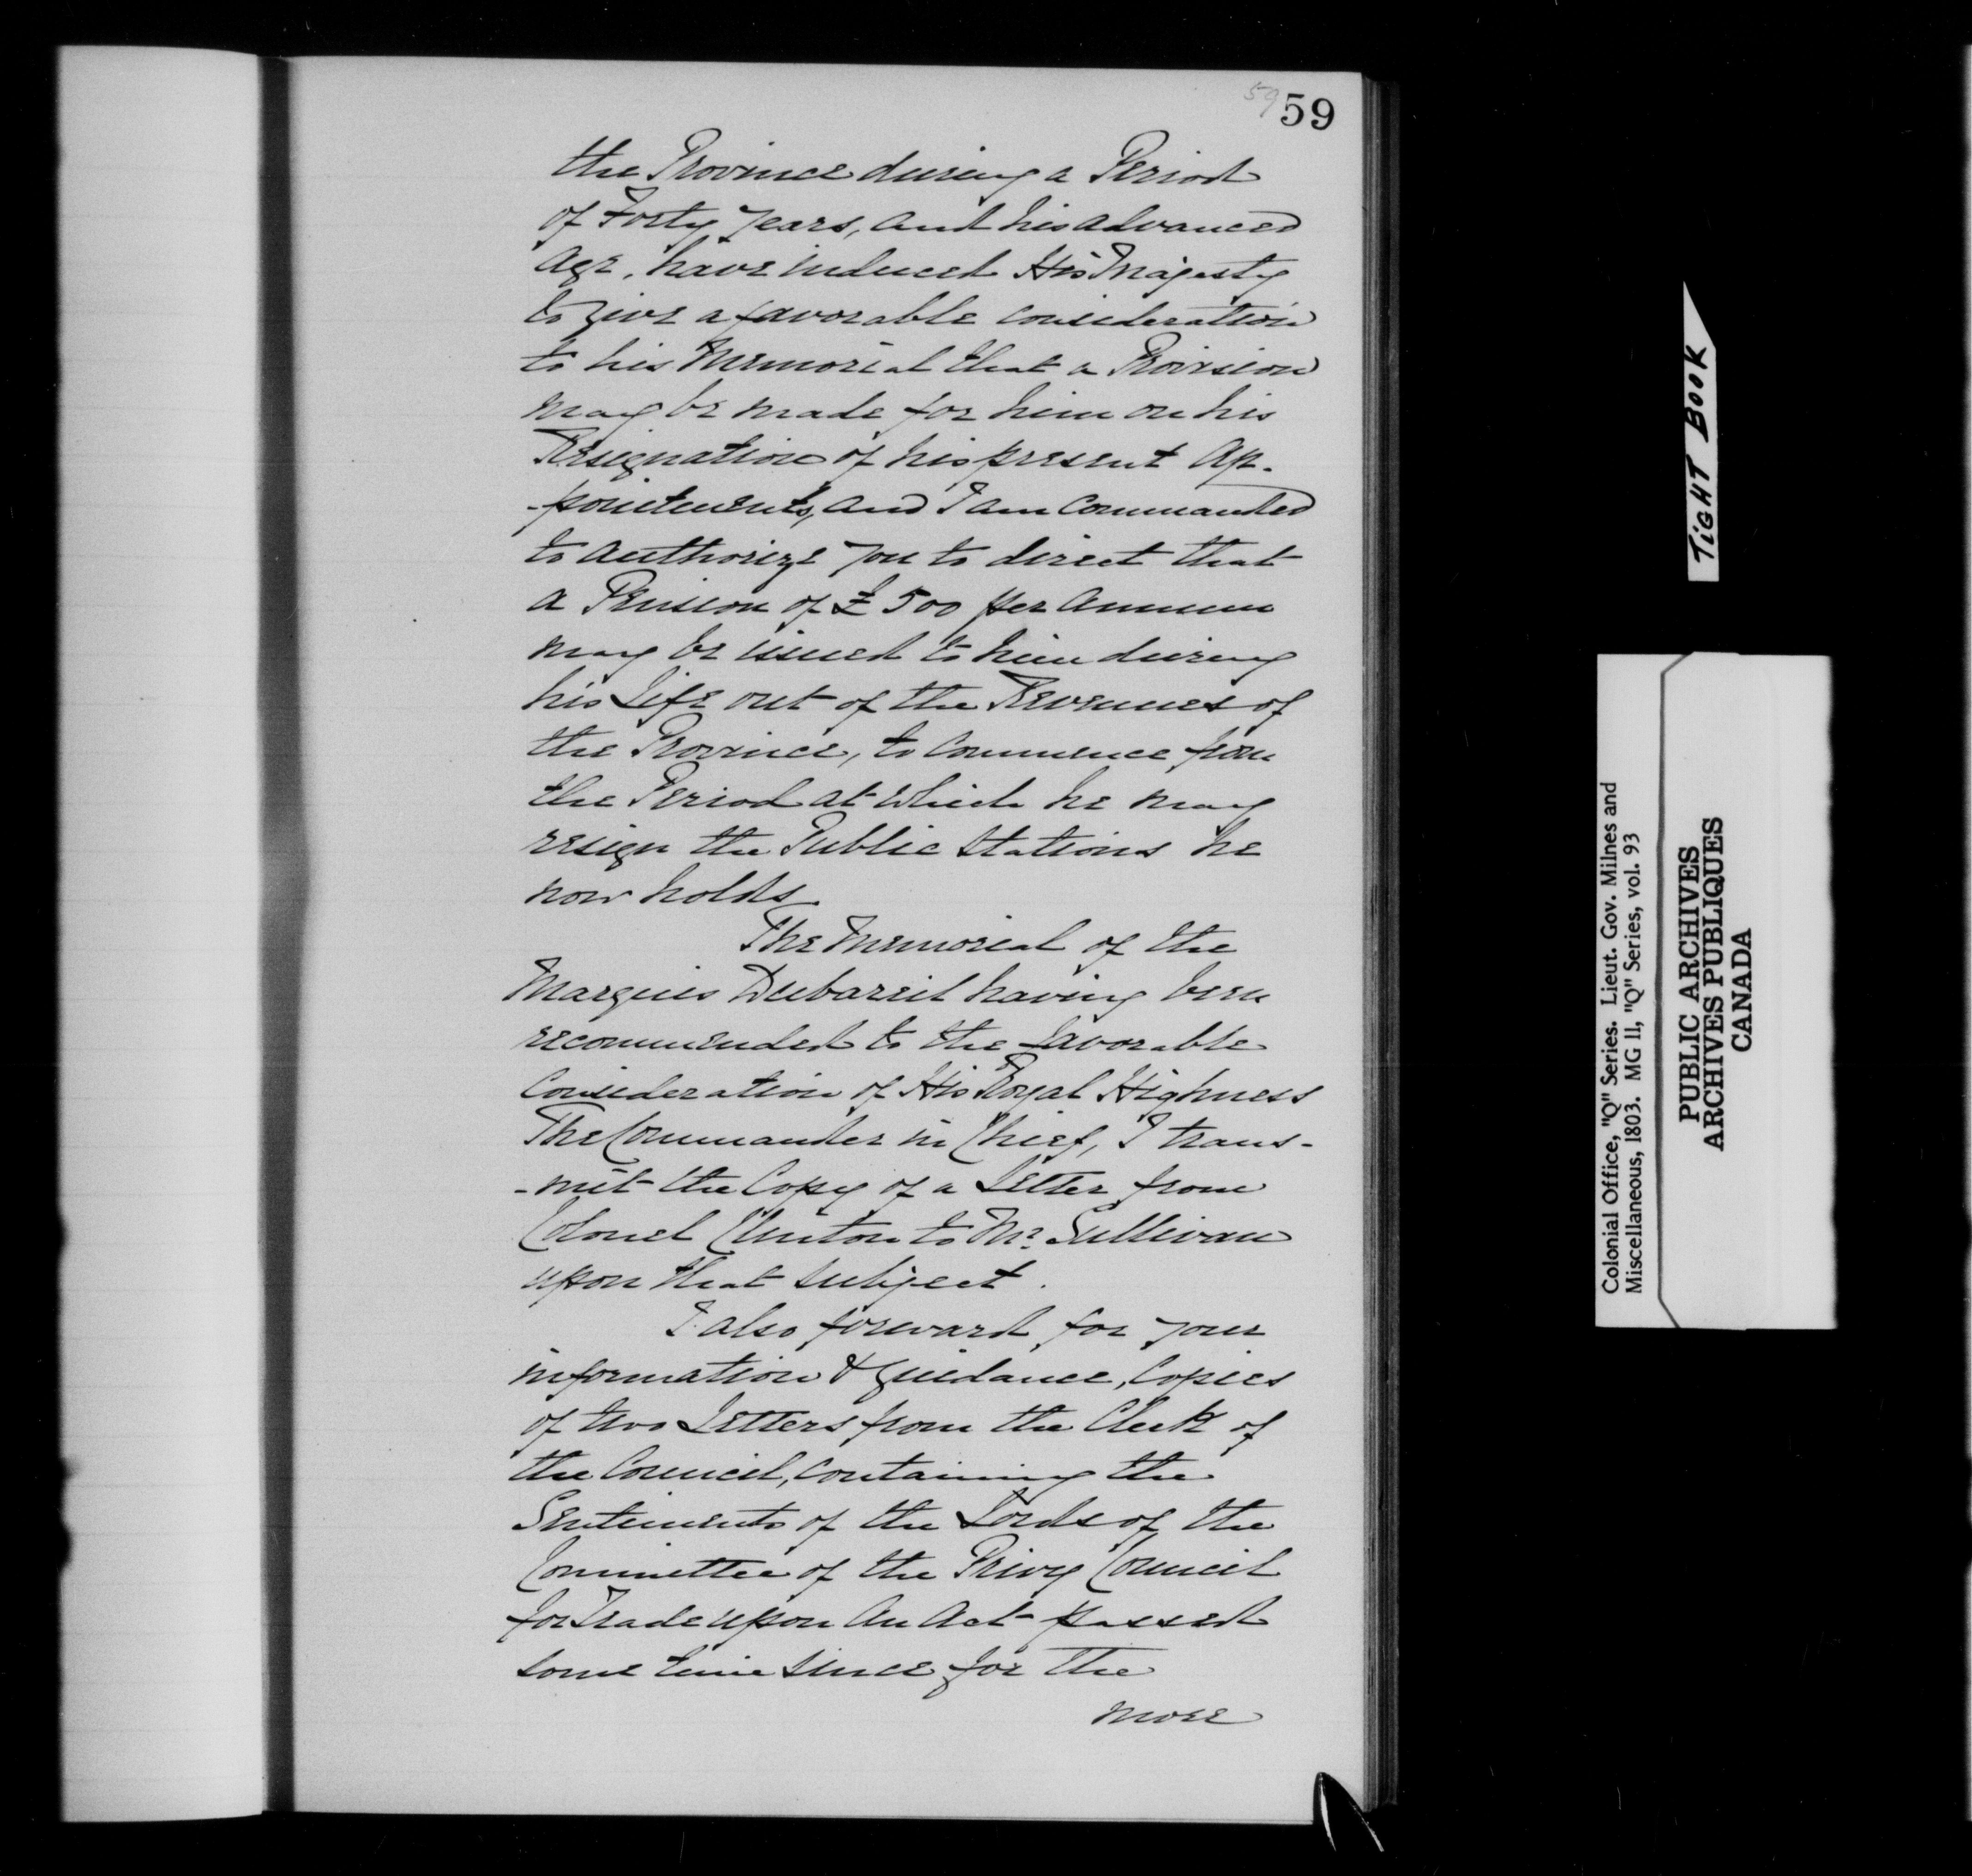 59 59
the Province during a Period
of Forty years, and his advanced
age, have induced His Majesty
to give a favorable consideration
to his Memorial that a Provision
may be made for him on his
Resignation of his present Ap-
-pointments, and I am commanded
to authorize you to direct that
a Pension of £500 per annum
may be issued to him during
his Life out of the Revenues of
the Province, to commence from
the Period at which he may
resign the Public Stations he
now holds
The Memorial of the
Marquis Dubarail having been
recommended to the favorable
Consideration of His Royal Highness
The Commander in Chief, I trans-
-mit the Copy of a Letter from
Colonel Clinton to Mr. Sullivan
upon that subject.
I also forward for your
information & guidance, Copies
of two Letters from the Clerk of
the Council, containing the
Sentiments of the Lords of the
Committee of the Privy Council
for Trade upon an Act passed
some time since for the
more
TIGHT BOOK
Colonial Office, "Q" Series. Lieut. Gov. Milnes and
Miscellaneous, 1803. MG 11, "Q" Series, vol. 93
PUBLIC ARCHIVES
ARCHIVES PUBLIQUES
CANADA